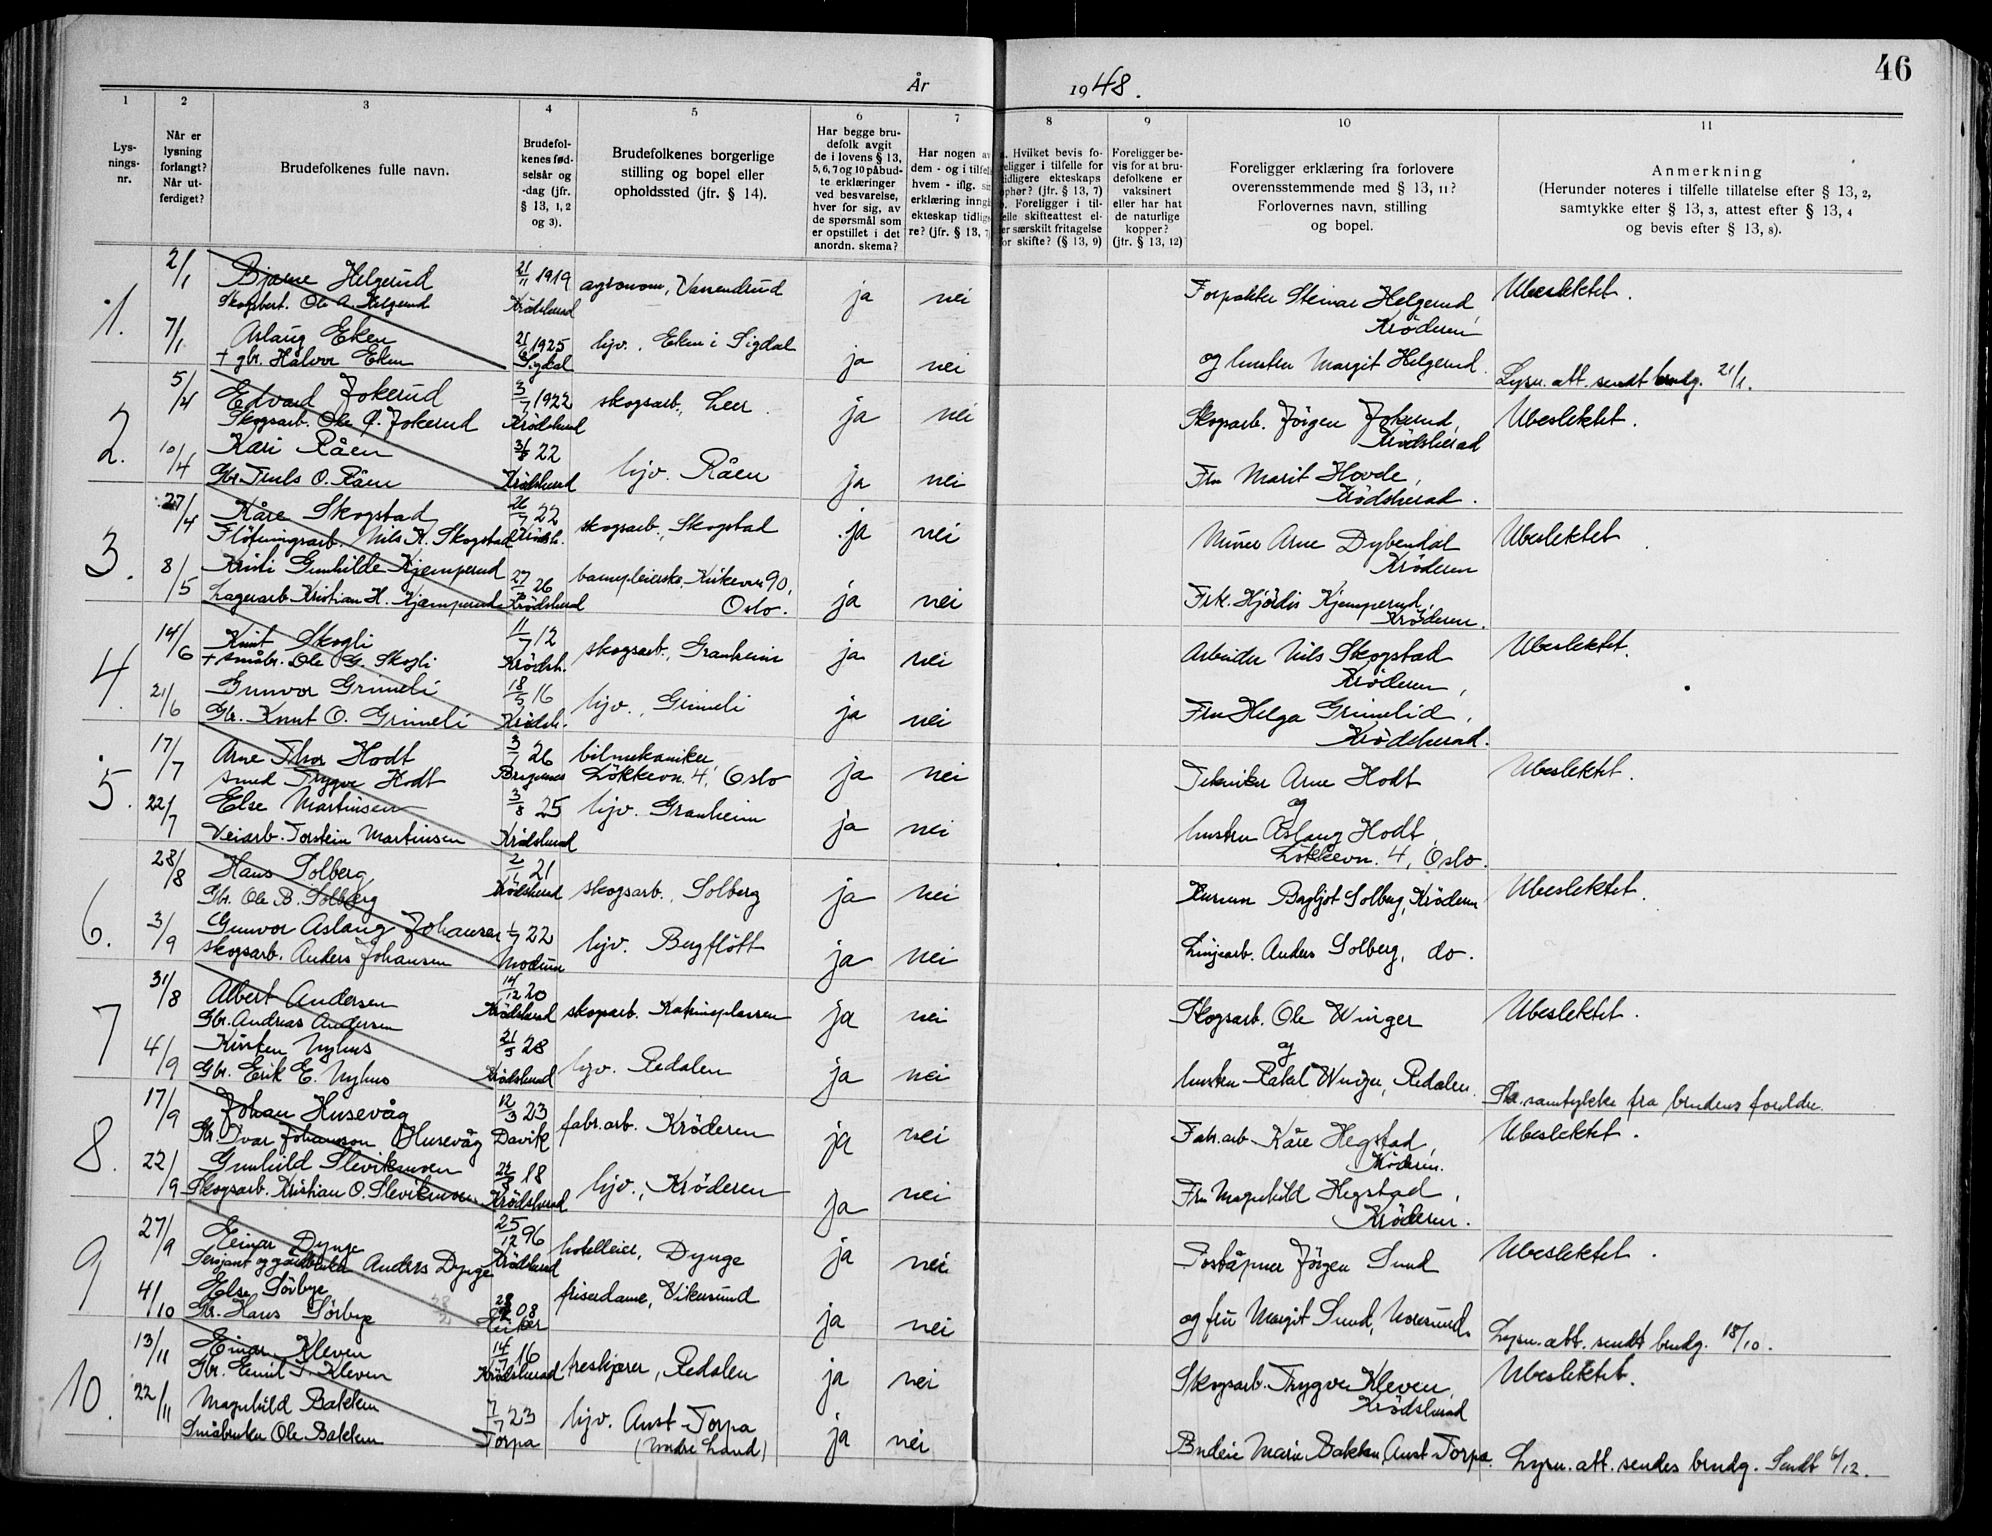 46
År 1948.
1 2 3 4 5 6 7 8 9 10 11
Lysningsnr.
Når er lysning forlangt? Når utferdiget?
Brudefolkenes fulle navn.
Brudefolkenes fødselsår og -dag (jfr. § 13, 1, 2 og 3).
Brudefolkenes borgerlige stilling og bopel eller opholdssted (jfr. § 14).
Har begge brudefolk avgit de i lovens § 13, 5, 6, 7 og 10 påbudte erklæringer ved besvarelse, hver for sig, av de spørsmål som er opstillet i det anordn. skema?
Har nogen av dem - og i tilfelle hvem - iflg. sin erklæring inngått ekteskap tidligere? (jfr. § 13, 7)
a. Hvilket bevis foreligger i tilfelle for tidligere ekteskaps ophør? (jfr. § 13, 7)
b. Foreligger i tilfelle skifteattest eller særskilt fritagelse for skifte? (§ 13, 9)
Foreligger bevis for at brudefolkene er vaksinert eller har hat de naturlige kopper? (jfr. § 13, 12)
Foreligger erklæring fra forlovere overensstemmende med § 13, 11? Forlovernes navn, stilling og bopel.
Anmerkning
(Herunder noteres i tilfelle tillatelse efter § 13, 2, samtykke efter § 13, 3, attest efter § 13, 4 og bevis efter § 13, 8).
1. 2/1 Bjarne Helgerud 21/11 1919 agronom, Vassendrud ja nei Forpakter Steinar Helgerud, Ubeslektet.
Skogsbest. Ole A. Helgerud Krödsherad Kröderen
7/1 Aslaug Eken 21/6 1925 hjv., Eken i Sigdal ja nei og hustru Margit Helgerud.
+ gbr. Halvor Eken Sigdal Lysn. att. sendt brudg. 21/1.
2. 5/4 Edvard Jokerud 3/7 1922 skogsarb., Leer. ja nei Skogsarb. Jörgen Jokerud, Ubeslektet.
Skogsarb. Ole P. Jokerud Krödsherad Krödsherad
10/4 Kari Råen 22 hjv. Råen ja nei Fru Marit Hovde,
Gbr. Truls O. Råen Krödsherad Krödsherad.
3. 27/4 Kåre Skogstad 26/7 22 skogsarb., Skogstad ja nei Murer Arne Dybendal Ubeslektet.
Flötningsarb. Nils K. Skogstad Krödsh. Kröderen
8/5 Kristi Gunhilde Kjemperud 26 barnepleierske Kirkeveien 90, ja nei Frk. Hjördis Kjemperud,
Lagerarb. Kristian H. Kjemperud Krödsherad Oslo. Kröderen.
4. 14/6 Knut Skogli 11/7 12 skogsarb., Granheim ja nei Arbeider Nils Skogstad Ubeslektet.
+ småbr. Ole G. Skogli Krödsh. Kröderen,
21/6 Gunvor Grimeli 18/5 16 hjv., Grimeli ja nei Fru Helga Grimelid,
Gbr. Knut O. Grimeli Krödsh. Krödsherad.
5. 17/7 Arne Thor Hodt 3/7 26 bilmekaniker ja nei Tekniker Arne Hodt Ubeslektet.
Smed Trygve Hodt Bragernes Lökkevn. 4, Oslo og
22/7 Else Martinsen 3/8 25 hjv. Granheim ja nei hustru Aslaug Hodt,
Veiarb. Torstein Martinsen Krödsherad Lökkevn. 4, Oslo.
6. 28/8 Hans Solberg 2/1 21 skogsarb., Solberg ja nei Husmor Bergljot Solberg, Kröderen Ubeslektet.
Gbr. Ole B. Solberg Krödsherad
3/9 Gunvor Aslaug Johansen 1/7 22 hjv. Bergflött ja nei Linjearb. Anders Solberg, do.
skogsarb. Anders Johansen Modum
7 31/8 Albert Andersen 14/12 20 skogsarb. Katrineplassen ja nei Skogsarb. Ole Winger Ubeslektet.
Gbr. Andreas Andersen Krödsherad og
4/9 Kirsten Nyhus 21/5 28 hjv. Redalen ja nei hustru Rakel Winger, Redalen.
Gbr. Erik E. Nyhus Krödsherad Skr. samtykke fra brudens foreldre.
8. 17/9 Johan Husevåg 12/3 23 fabr.arb. Kröderen ja nei Fabr.arb. Kåre Hegstad, Ubeslektet.
Gbr. Ivar Johanson Husevåg Davik Kröderen.
22/9 Gunhild Sleviksveen 18 hjv., Kröderen ja nei Fru Magnhild Hegstad,
Skogsarb. Kristian O. Sleviksveen Krödsherad Kröderen.
9 27/9 Einar Dynge 25/12 96 hotelleier, Dynge ja nei Poståpner Jörgen Sund Ubeslektet.
Sersjant og gårdbruker Anders Dynge Krödsherad
4/10 Else Sörbye 08 friserdame, Vikersund ja nei og fru Margit Sund, Noresund.
Gbr. Hans Sörbye 28/2 Eiker Lysn. att. sendt brudg. 18/10.
10. 13/11 Einar Kleven 14/7 16 treskjærer, Redalen ja nei Skogsarb. Trygve Kleven, Ubeslektet.
Gbr. Emil T. Kleven Krödsherad Krödsherad
22/11 Magnhild Bakken 7/7 23 hjv. Aust-Torpa ja nei Budeie Marie Bakken, Aust-Torpa.
Småbruker Ole Bakken Torpa (Nordre Land) Lysn. att. sendes brudg. Sendt 6/12.